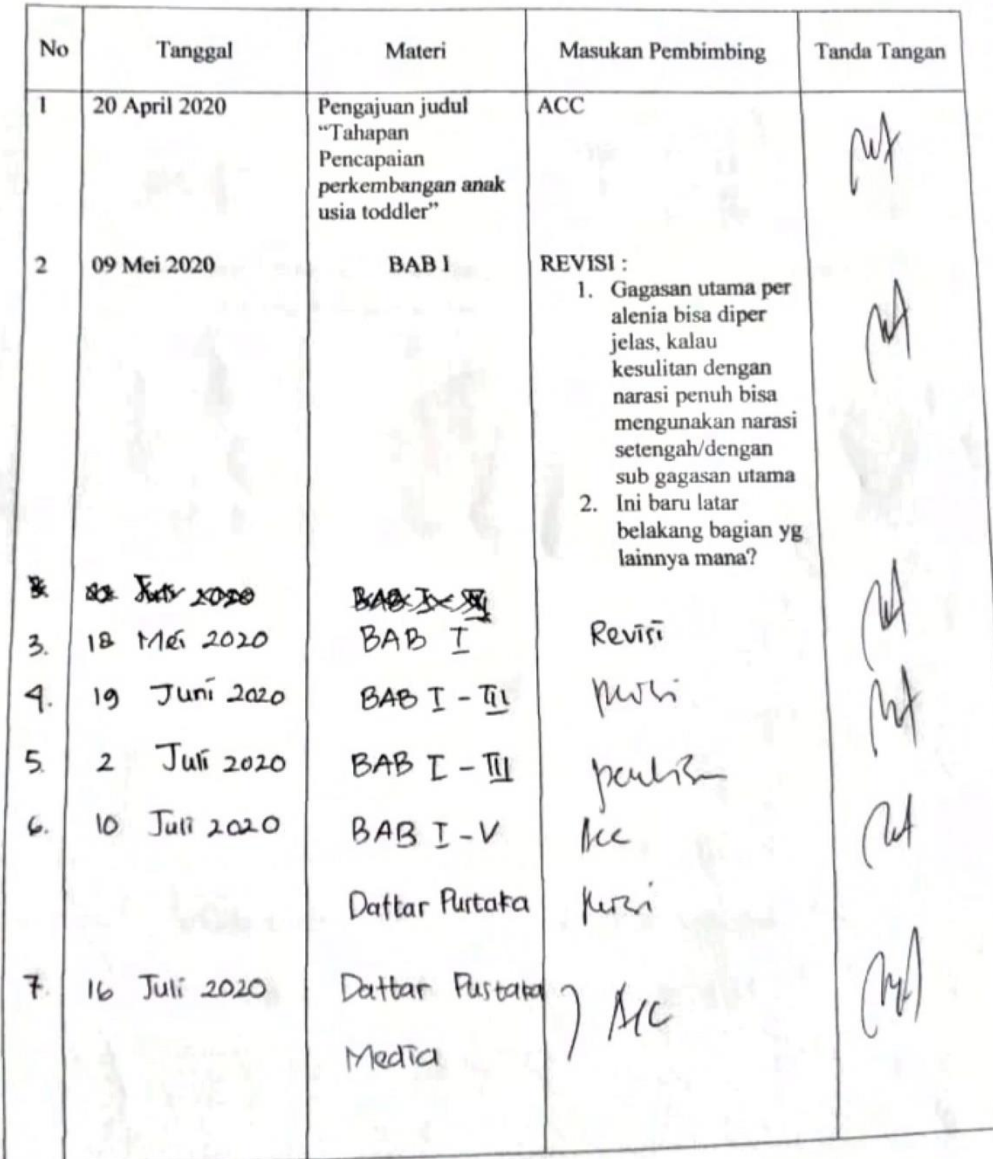 No Tanggal Materi Masukan Pembimbing Tanda Tangan
1 20 April 2020 Pengajuan judul ACC
“Tahapan
Pencapaian
perkembangan anak
usia toddler”
2 09 Mei 2020 BAB I REVISI :
1. Gagasan utama per
alenia bisa diper
jelas, kalau
kesulitan dengan
narasi penuh bisa
mengunakan narasi
setengah/dengan
sub gagasan utama
2. Ini baru latar
belakang bagian yg
lainnya mana?
3. 18 Mei 2020 BAB I Revisi
4. 19 Juni 2020 BAB I - III
5. 2 Juli 2020 BAB I - III
6. 10 Juli 2020 BAB I - V Acc
Daftar Pustaka
7. 16 Juli 2020 Daftar Pustaka ACC
Media